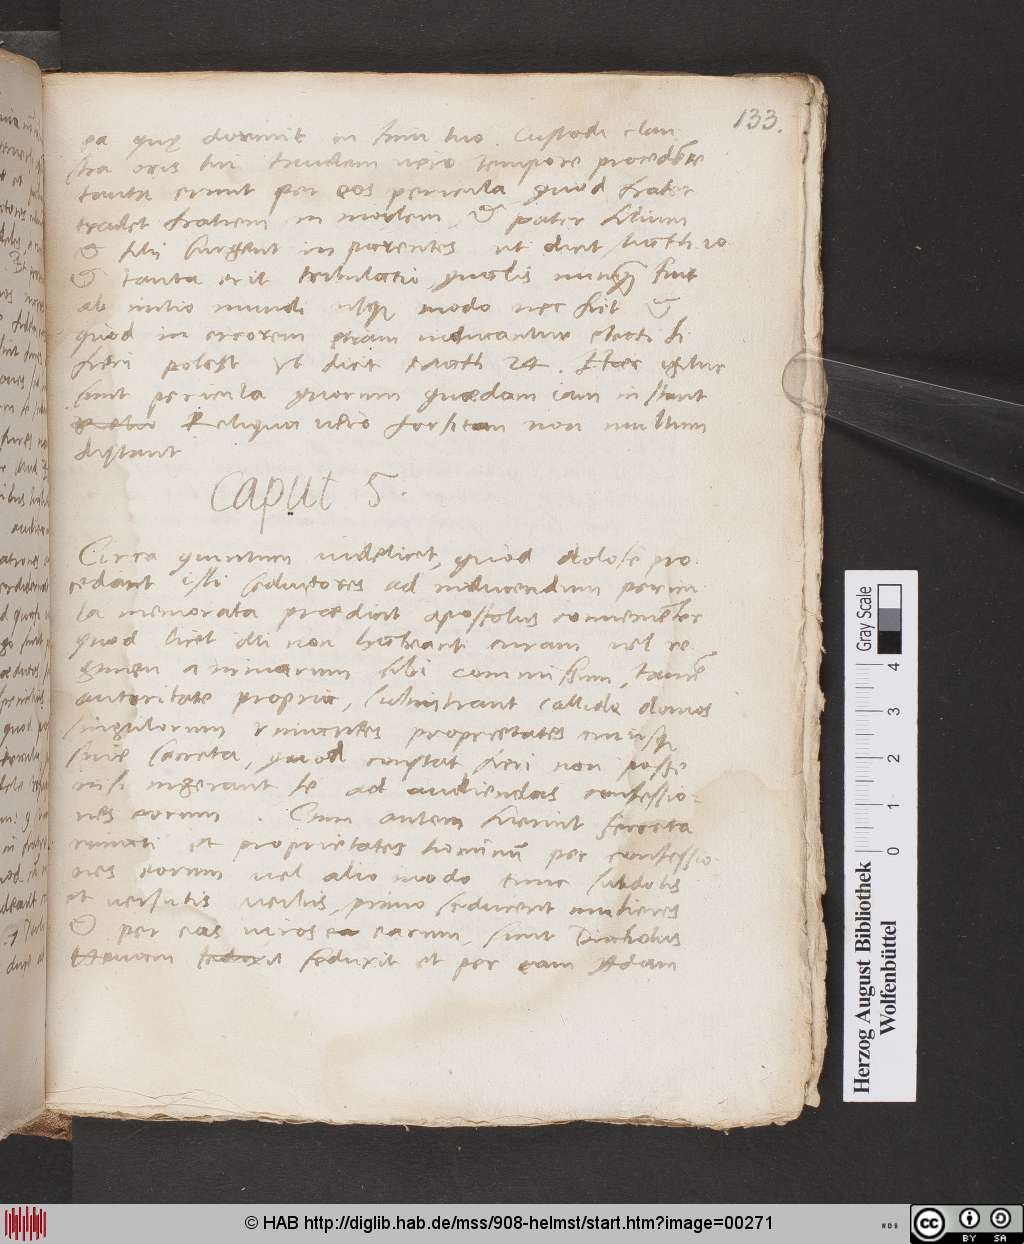 133.
ea quę dormit in sinu tuo. Custodi clau
stra oris tui tandem vero tempore procedente
tanta erunt per eos pericula quod frater
tradet fratrem in mortem, & pater filium
& filij surgent in parentes ut dicit Math 10
& tanta erit tribulatio, qualis nunquã fuit
ab initio mundi usque modo nec fiet &
quod in errorem etiam inducantur electi si
fieri potest Vt dicit Math 24. Haec igitur
sunt pericula quorum quaedam iam instant
Reliqua vero forsitan non multum
distant
Caput 5.
Circa quintum videlicet, quod dolose pro
cedant isti seductores ad inducendum pericu
la memorata praedicit apostolus convenienter
quod licet illi non habeant curam vel re
gimen animarum sibi commissum, tamen
autoritate propria, subintrant callide domos
singulorum rimantes proprietates cuiusque
sive secreta, quod constat fieri non posse
nisi ingerant se ad audiendas confessio-
nes eorum. Cum autem fuerint secreta
rimati et proprietates hominũ per confessio
nes eorum vel alio modo tunc subdolis
et versutis verbis, primo seducent mulieres
& per eas viros earum, sicut Diabolus
Hevam seduxit et per eam Adam
Gray Scale
0 1 2 3 4
Herzog August Bibliothek
Wolfenbüttel
© HAB http://diglib.hab.de/mss/908-helmst/start.htm?image=00271
WDB
cc BY SA